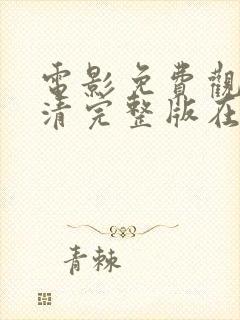 電影免費觀
清完整版在
青棘